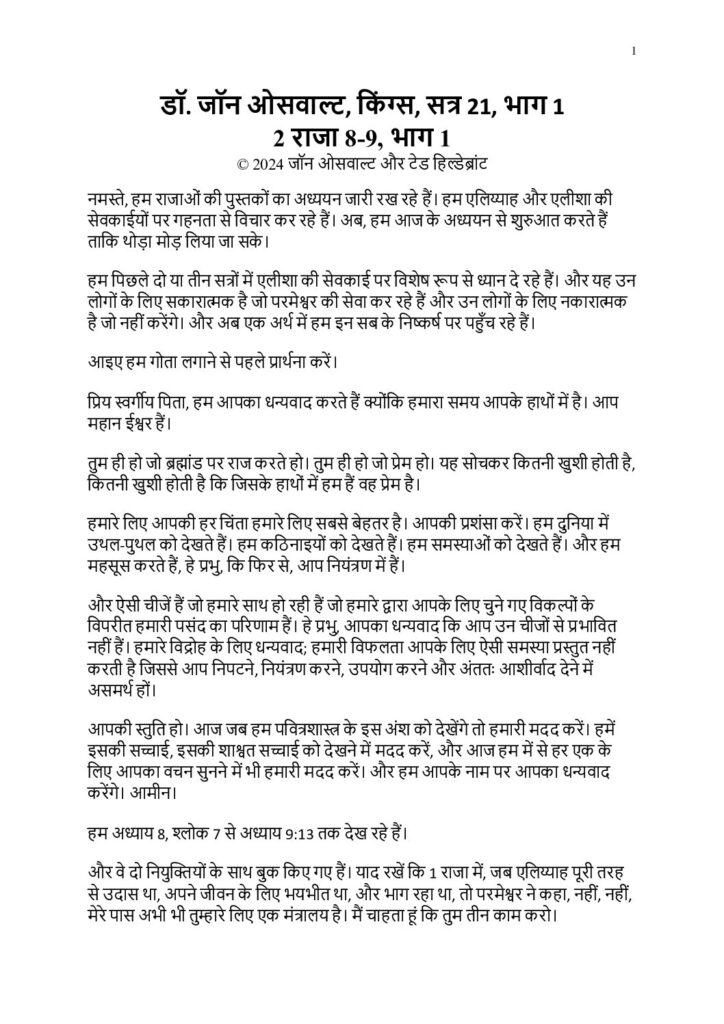 1
डॉ. जॉन ओसवाल्ट, किंग्स, सत्र 21, भाग 1
2 राजा 8-9, भाग 1
© 2024 जॉन ओसवाल्ट और टेड हिल्डेब्रांट
नमस्ते, हम राजाओं की पुस्तकों का अध्ययन जारी रख रहे हैं। हम एलिय्याह और एलीशा की
सेवकाईयों पर गहनता से विचार कर रहे हैं। अब, हम आज के अध्ययन से शुरुआत करते हैं
ताकि थोड़ा मोड़ लिया जा सके।
हम पिछले दो या तीन सत्रों में एलीशा की सेवकाई पर विशेष रूप से ध्यान दे रहे हैं। और यह उन
लोगों के लिए सकारात्मक है जो परमेश्वर की सेवा कर रहे हैं और उन लोगों के लिए नकारात्मक
है जो नहीं करेंगे। और अब एक अर्थ में हम इन सब के निष्कर्ष पर पहुँच रहे हैं।
आइए हम गोता लगाने से पहले प्रार्थना करें।
प्रिय स्वर्गीय पिता, हम आपका धन्यवाद करते हैं क्योंकि हमारा समय आपके हाथों में है। आप
महान ईश्वर हैं।
तुम ही हो जो ब्रह्मांड पर राज करते हो। तुम ही हो जो प्रेम हो। यह सोचकर कितनी खुशी होती है,
कितनी खुशी होती है कि जिसके हाथों में हम हैं वह प्रेम है।
हमारे लिए आपकी हर चिंता हमारे लिए सबसे बेहतर है। आपकी प्रशंसा करें। हम दुनिया में
उथल-पुथल को देखते हैं। हम कठिनाइयों को देखते हैं। हम समस्याओं को देखते हैं। और हम
महसूस करते हैं, हे प्रभु, कि फिर से, आप नियंत्रण में हैं।
और ऐसी चीजें हैं जो हमारे साथ हो रही हैं जो हमारे द्वारा आपके लिए चुने गए विकल्पों के
विपरीत हमारी पसंद का परिणाम हैं। हे प्रभु, आपका धन्यवाद कि आप उन चीजों से प्रभावित
नहीं हैं। हमारे विद्रोह के लिए धन्यवाद; हमारी विफलता आपके लिए ऐसी समस्या प्रस्तुत नहीं
करती है जिससे आप निपटने, नियंत्रण करने, उपयोग करने और अंततः आशीर्वाद देने में
असमर्थ हों।
आपकी स्तुति हो। आज जब हम पवित्रशास्त्र के इस अंश को देखेंगे तो हमारी मदद करें। हमें
इसकी सच्चाई, इसकी शाश्वत सच्चाई को देखने में मदद करें, और आज हम में से हर एक के
लिए आपका वचन सुनने में भी हमारी मदद करें। और हम आपके नाम पर आपका धन्यवाद
करेंगे। आमीन।
हम अध्याय 8, श्लोक 7 से अध्याय 9:13 तक देख रहे हैं।
और वे दो नियुक्तियों के साथ बुक किए गए हैं। याद रखें कि 1 राजा में, जब एलिय्याह पूरी तरह
से उदास था, अपने जीवन के लिए भयभीत था, और भाग रहा था, तो परमेश्वर ने कहा, नहीं, नहीं,
मेरे पास अभी भी तुम्हारे लिए एक मंत्रालय है। मैं चाहता हूं कि तुम तीन काम करो।